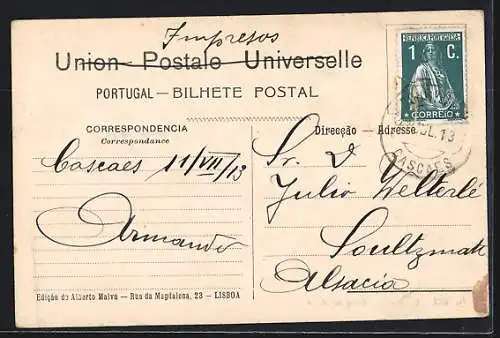 Impresos
Union Postale Universelle
PORTUGAL — BILHETE POSTAL
REPUBLICA PORTUGUESA
1 C.
CORREIO
CASCAES
CORRESPONDENCIA
Correspondance
Direcção — Adresse
Cascaes 11/VII/13
Armando
Sr. D
Julio Welterlé
Soultzmatt
Alsacia
Edição de Alberto Malva — Rua da Magdalena, 23 — LISBOA